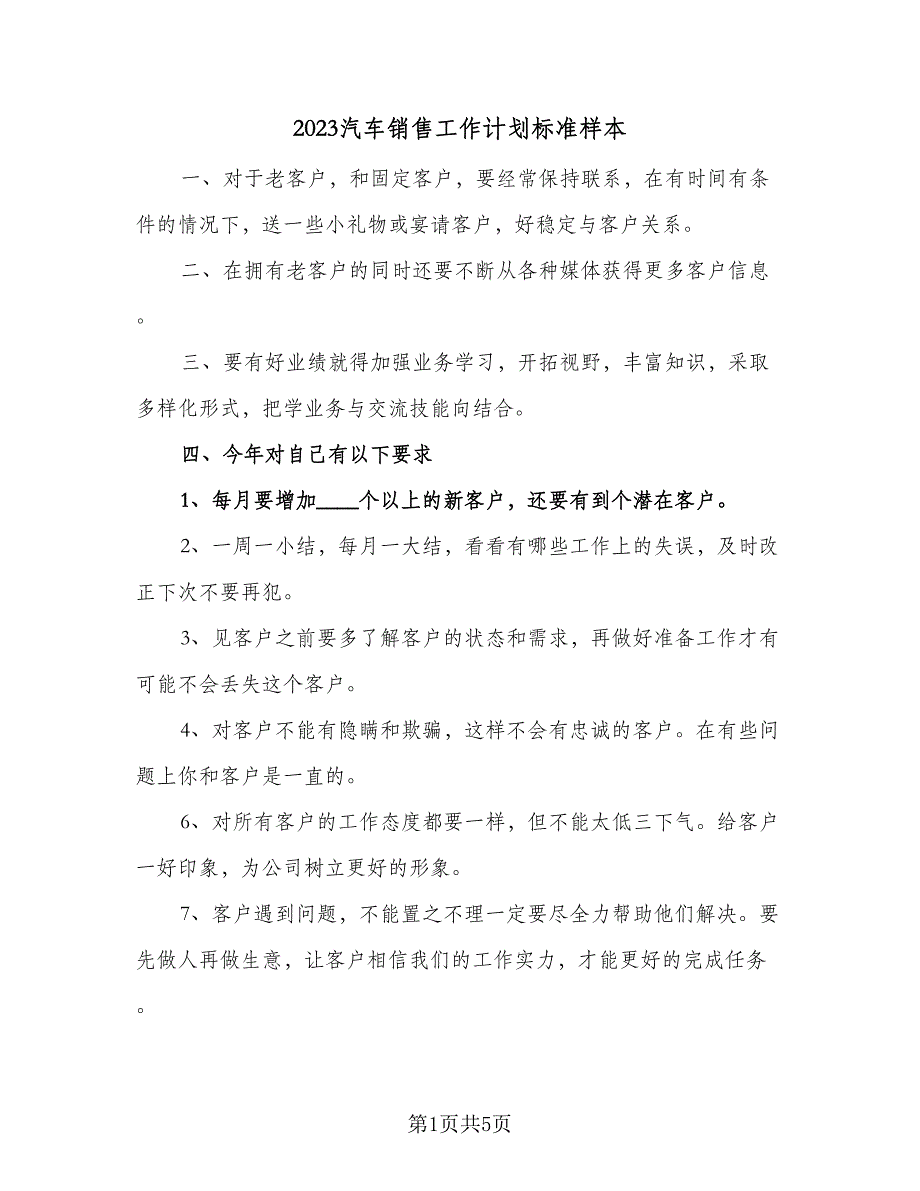 2023汽车销售工作计划标准样本
一、对于老客户，和固定客户，要经常保持联系，在有时间有条
件的情况下，送一些小礼物或宴请客户，好稳定与客户关系。
二、在拥有老客户的同时还要不断从各种媒体获得更多客户信息
。
三、要有好业绩就得加强业务学习，开拓视野，丰富知识，采取
多样化形式，把学业务与交流技能向结合。
四、今年对自己有以下要求
1、每月要增加____个以上的新客户，还要有到个潜在客户。
2、一周一小结，每月一大结，看看有哪些工作上的失误，及时改
正下次不要再犯。
3、见客户之前要多了解客户的状态和需求，再做好准备工作才有
可能不会丢失这个客户。
4、对客户不能有隐瞒和欺骗，这样不会有忠诚的客户。在有些问
题上你和客户是一直的。
6、对所有客户的工作态度都要一样，但不能太低三下气。给客户
一好印象，为公司树立更好的形象。
7、客户遇到问题，不能置之不理一定要尽全力帮助他们解决。要
先做人再做生意，让客户相信我们的工作实力，才能更好的完成任务
。
第1页共5页